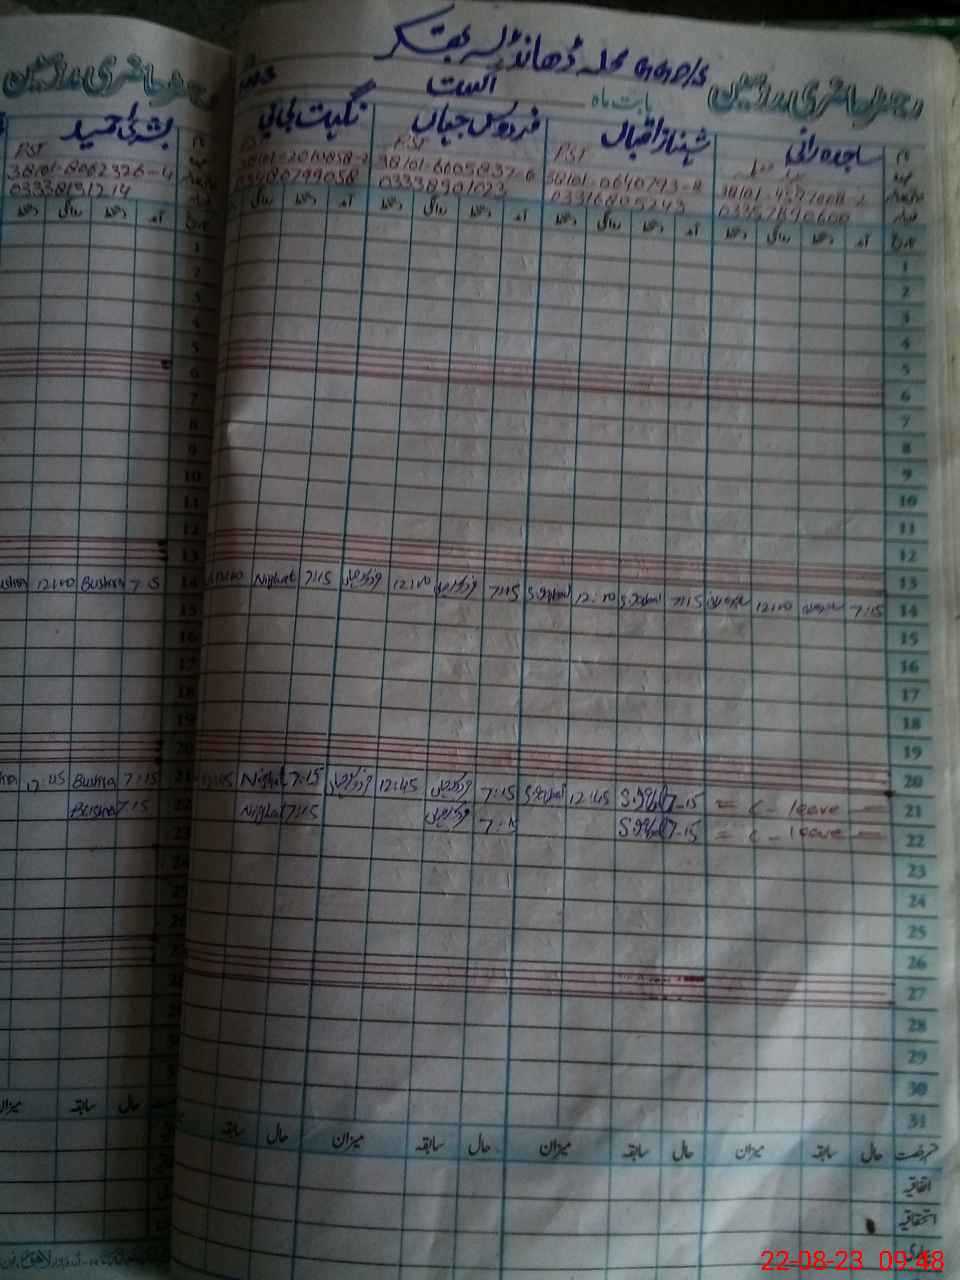 GGP/S محلہ ڈھانڈلہ بھکر
رجسٹر حاضری مدرسین
بابت ماہ
اگست
رجسٹر حاضری مدرسین
ساجدہ رانی
شہناز اقبال
فردوس جہاں
نگہت بی بی
بشریٰ حمید
PST
PST
PST
PST
38101-0640793-8
38101-6605837-6
38101-8062326-4
03316805243
03338901023
03480799058
03338151214
تاریخ آمد دستخط روانگی دستخط آمد دستخط روانگی دستخط آمد دستخط روانگی دستخط آمد دستخط روانگی دستخط
1
2
3
4
5
6
7
8
9
10
11
12
13
14 7:15 ساجدہ 12:00 ساجدہ 7:15 S.Iqbal 12:00 S.Iqbal 7:15 فردوس جہاں 12:00 فردوس جہاں 7:15 Nighat 12:00 7:15 Bushra 12:00 Bushra
15
16
17
18
19
20
21 = C - leave = 7-15 S.Iqbal 12:45 S.Iqbal 7:15 فردوس جہاں 12:45 فردوس جہاں 7:15 Nighat 12:45 7:15 Bushra 12:45
22 = C - leave = 7-15 S.Iqbal 7:15 فردوس جہاں 7:15 Nighat 7:15 Bushra
23
24
25
26
27
28
29
30
31
قسم رخصت حال سابقہ میزان حال سابقہ میزان حال سابقہ میزان حال سابقہ حال سابقہ میزان
اتفاقیہ
استحقاقیہ
22-08-23 09:48